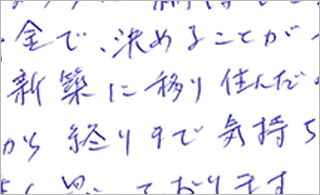 金で、決めることが
新築に移り住んだ
から終りまで気持ち
ております